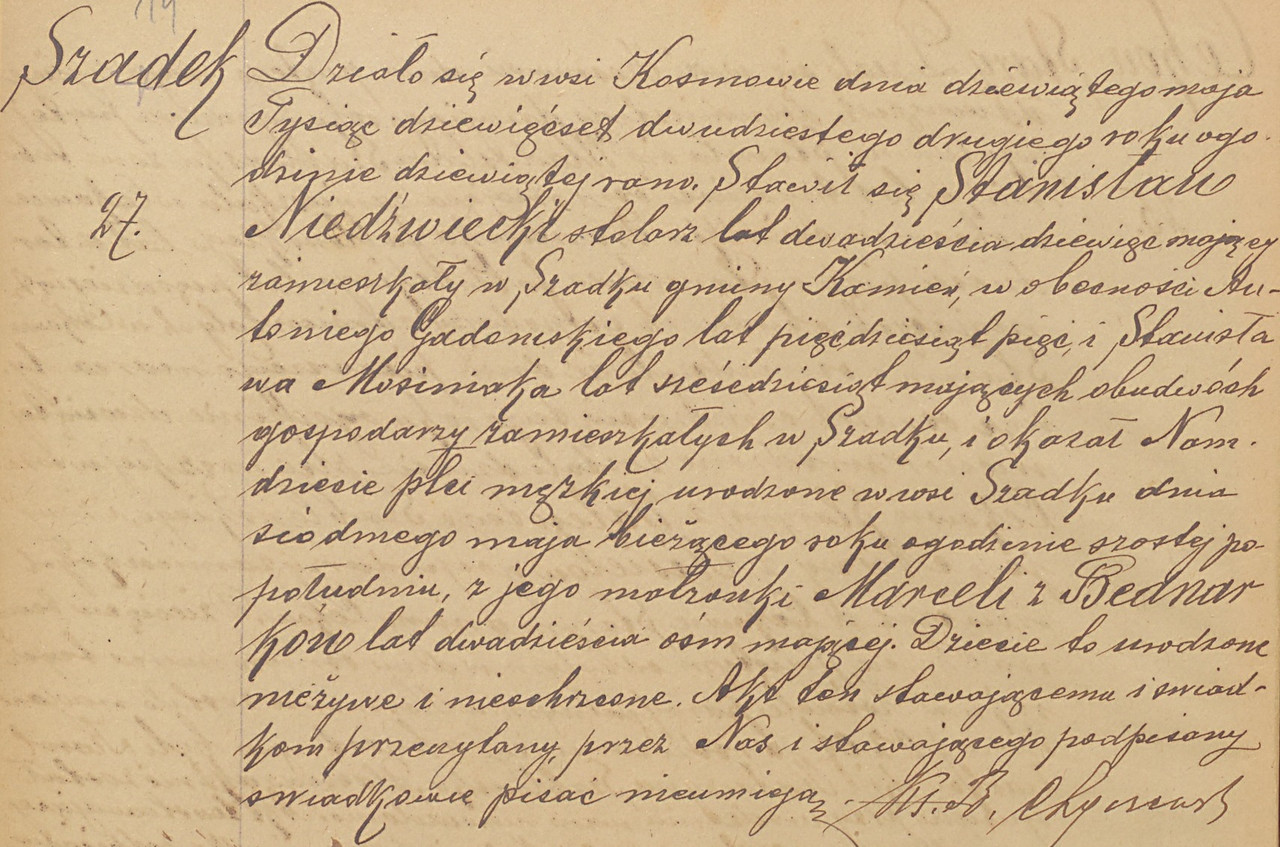 Szadek
27.
Działo się w wsi Kosmowie dnia dziewiątego maja
Tysiąc dziewięćset dwudziestego drugiego roku o go-
dzinie dziewiątej rano. Stawił się Stanisław
Niedźwiecki stolarz lat dwadzieścia dziewięć mający
zamieszkały w Szadku gminy Kamień, w obecności An-
toniego Gadomskiego lat pięćdziesiąt pięć, i Stanisła
wa Mosiniaka lat sześćdziesiąt mających obudwóch
gospodarzy zamieszkałych w Szadku, i okazał Nam
dziecie płci męzkiej urodzone w wsi Szadku dnia
siódmego maja bieżącego roku o godzinie szostej po-
południu, z jego małzonki Marceli z Bednar
ków lat dwadzieścia ośm mającej. Dziecie to urodzone
nieżywe i nieochrzcone. Akt ten stawającemu i swiad-
kom przeczytany, przez Nas i stawającego podpisany
swiadkowie pisać nieumieją